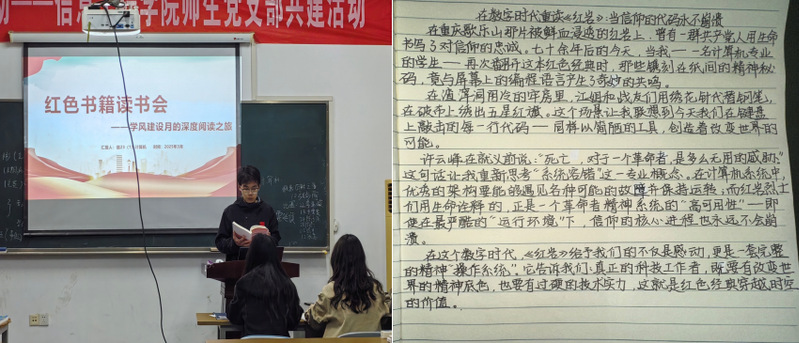 学院师生党支部共建活动
红色书籍读书会
——学风建设月的深度阅读之旅
在数字时代重读《红岩》:当信仰的代码永不崩溃
在重庆歌乐山那片被鲜血浸透的红岩上,曾有一群共产党人用生命
书写了对信仰的忠诚。七十余年后的今天,当我——一名计算机专业
的学生——再次翻开这本红色经典时,那些镌刻在纸间的精神秘
码,竟与屏幕上的编程语言产生了奇妙的共鸣。
在渣滓洞阴冷的牢房里,江姐和战友们用绣花针代替钢笔,
在破布上绣出五星红旗。这个场景让我联想到今天我们在键盘
上敲击的每一行代码——同样以简陋的工具,创造着改变世界的
可能。
许云峰在就义前说:"死亡,对于一个革命者,是多么无用的威胁。"
这句话让我重新思考"系统容错"这一专业概念。在计算机系统中,
优秀的架构要能够遇见各种可能的故障并保持运转;而红岩烈士
们用生命诠释的,正是一个革命者精神系统的"高可用性"——即
使在最严酷的"运行环境"下,信仰的核心进程也永远不会崩
溃。
在这个数字时代,《红岩》给予我们的不仅是感动,更是一套完整
的精神"操作系统"。它告诉我们:真正的科技工作者,既要有改变世
界的精神底色,也要有过硬的技术实力,这就是红色经典穿越时空
的价值。